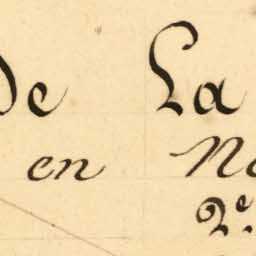 de La
en No
2e.